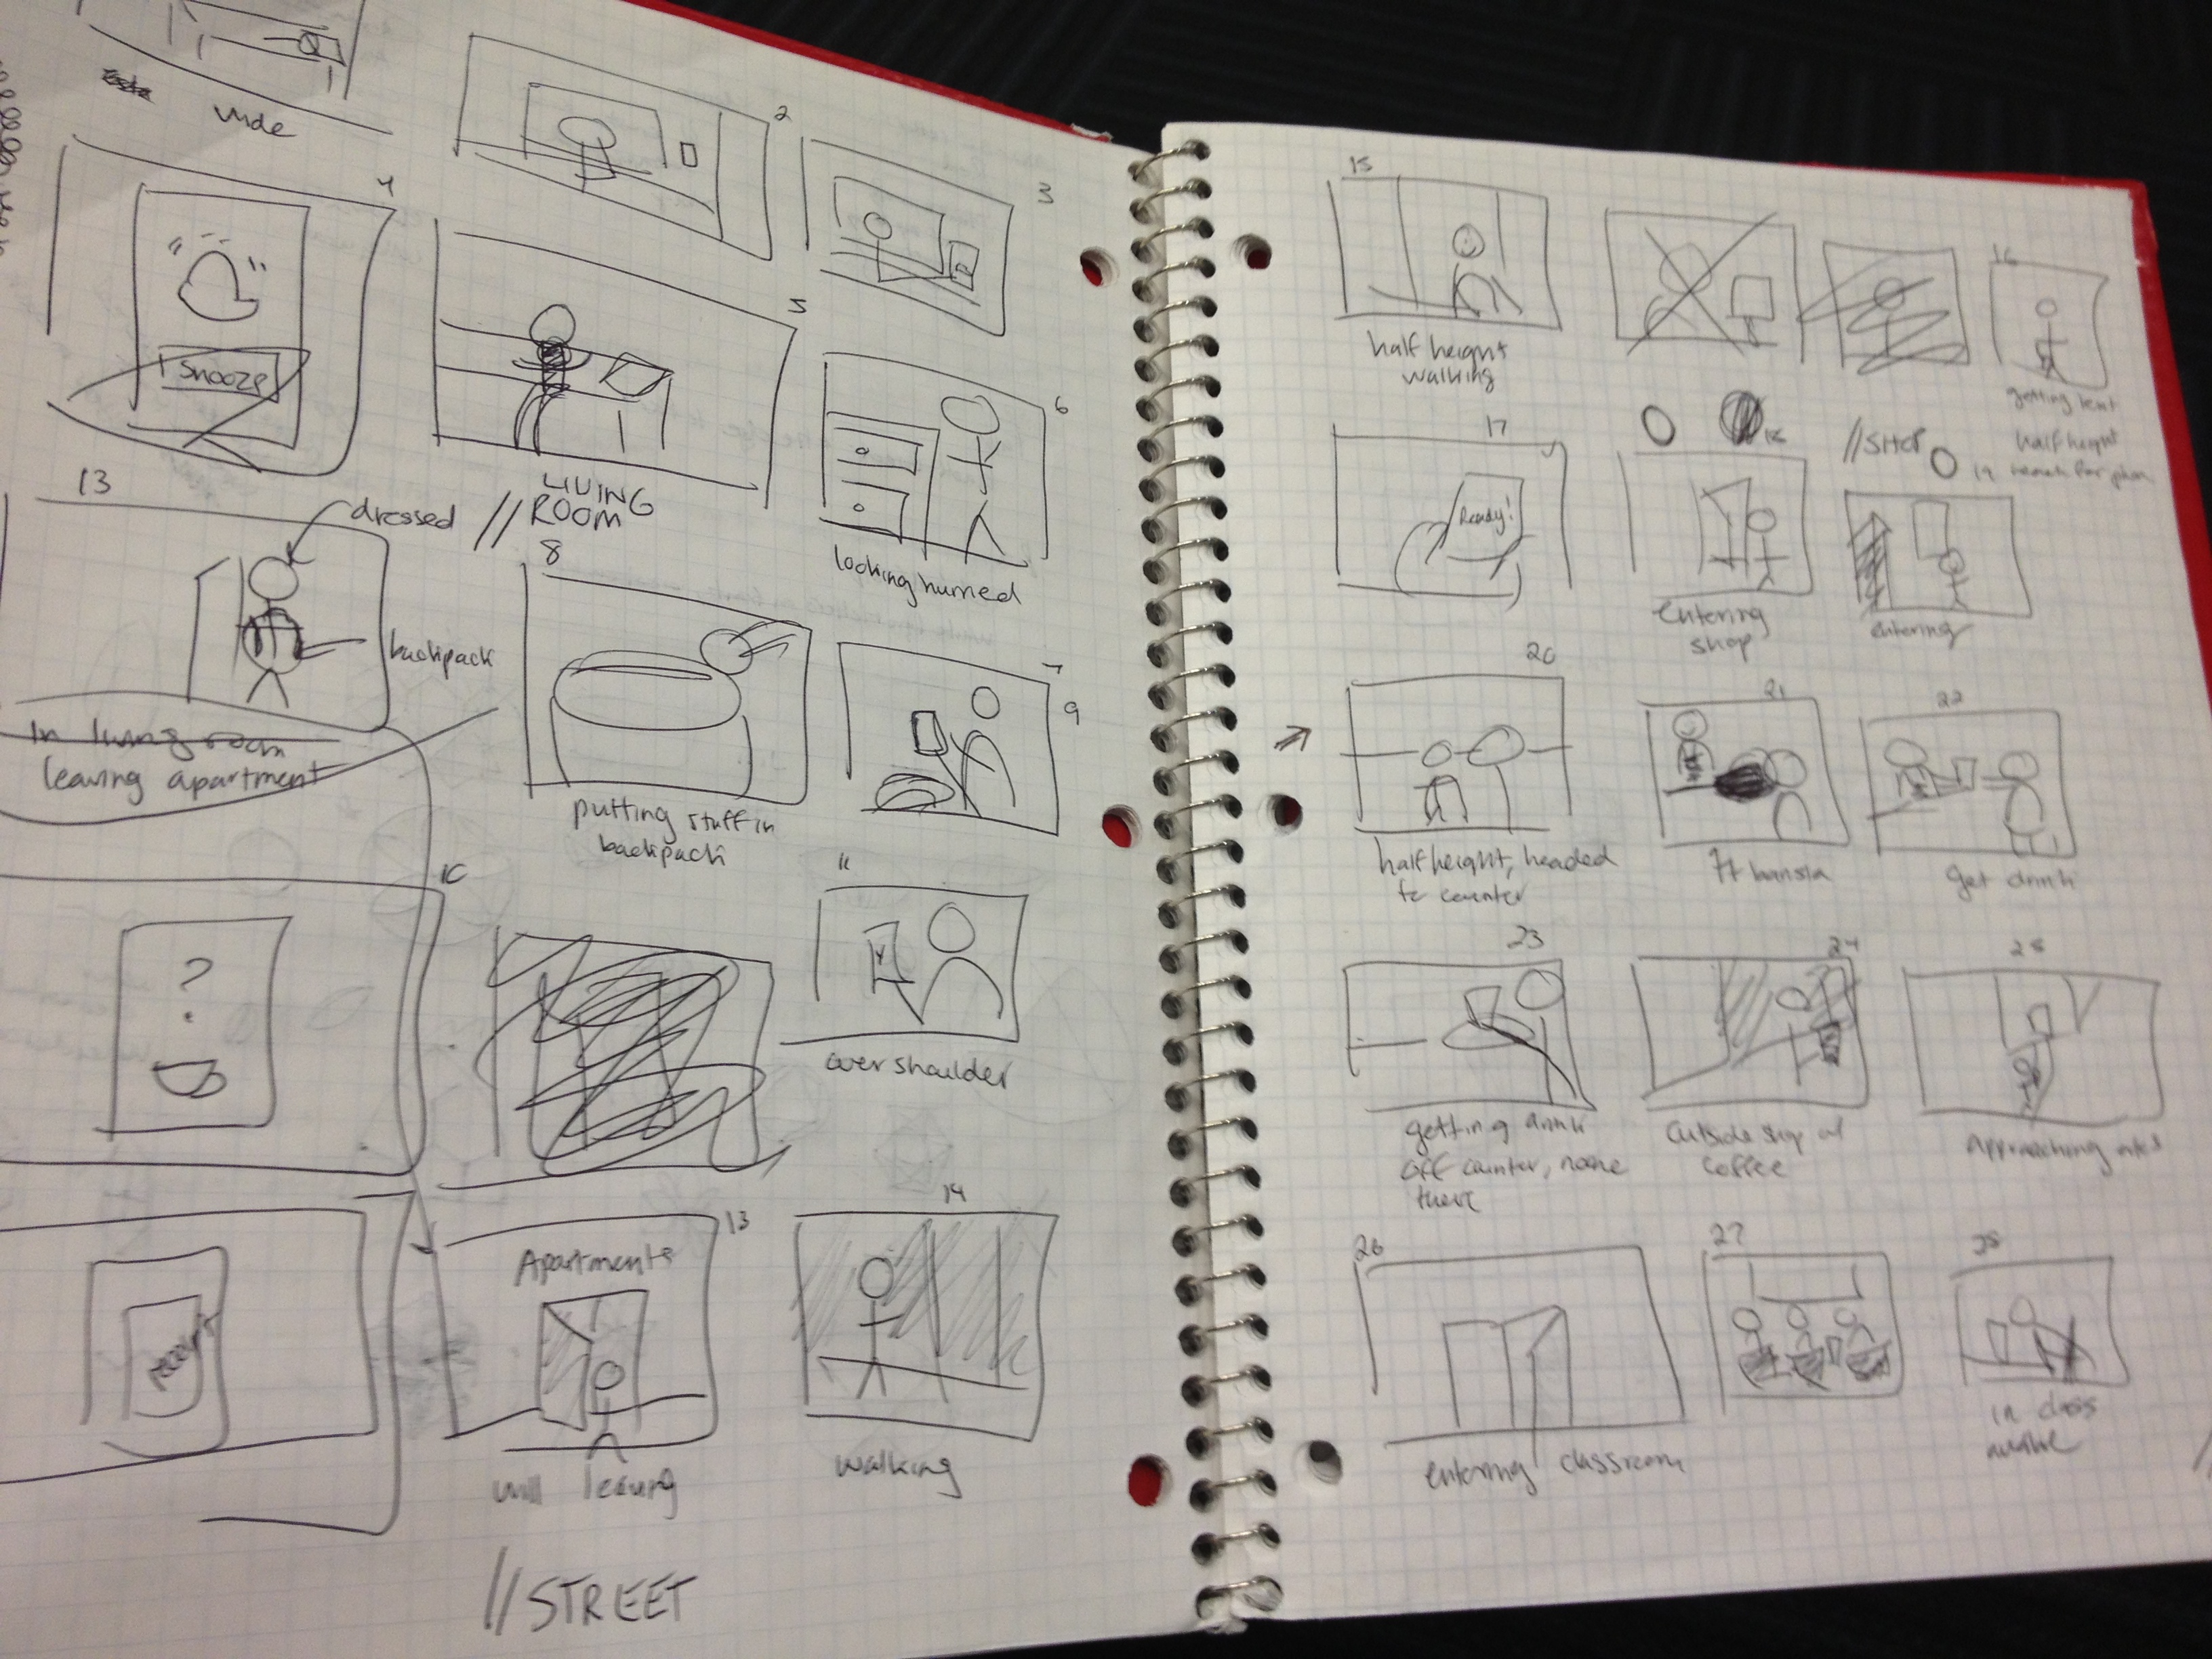 wide
2
3
4
snooze
5
6
looking hurried
13
dressed
backpack
in living room
leaving apartment
// LIVING
ROOM
8
putting stuff in
backpack
9
10
?
11
over shoulder
receipt
13
Apartments
will leaving
14
walking
// STREET
15
half height
walking
16
getting text
half height
reach for phone
17
Ready!
18
entering
shop
// SHOP
19
entering
20
half height, headed
to counter
21
barista
22
get drink
23
getting drink
off counter, none
there
24
outside shop w/
coffee
25
approaching
26
entering classroom
27
28
in class